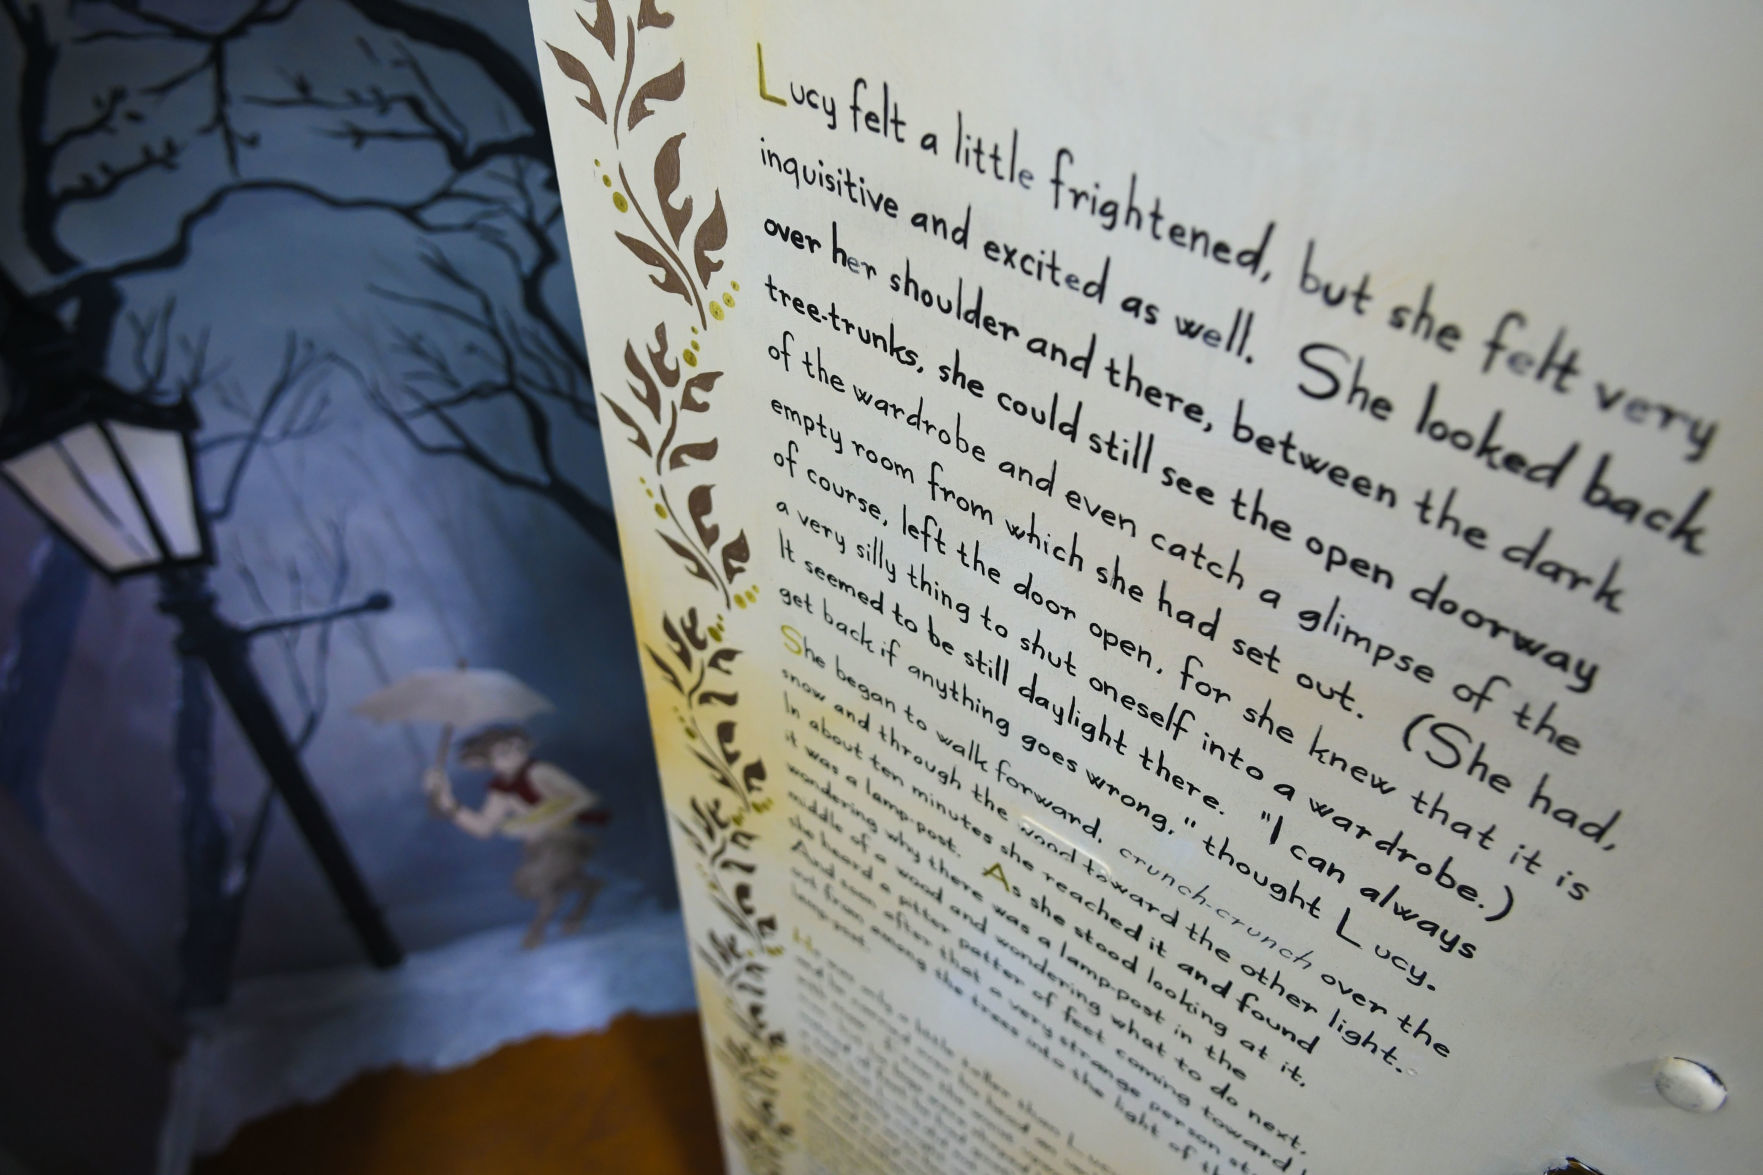 Lucy felt a little frightened, but she felt very
inquisitive and excited as well. She looked back
over her shoulder and there, between the dark
tree-trunks, she could still see the open doorway
of the wardrobe and even catch a glimpse of the
empty room from which she had set out. (She had,
of course, left the door open, for she knew that it is
a very silly thing to shut oneself into a wardrobe.)
It seemed to be still daylight there. "I can always
get back if anything goes wrong," thought Lucy.
She began to walk forward, crunch-crunch over the
snow and through the wood toward the other light.
In about ten minutes she reached it and found
it was a lamp-post. As she stood looking at it,
wondering why there was a lamp-post in the
middle of a wood and wondering what to do next,
she heard a pitter patter of feet coming toward
And soon after that a very strange person
out from among the trees into the light of
lamp-post.
He was only a little taller than